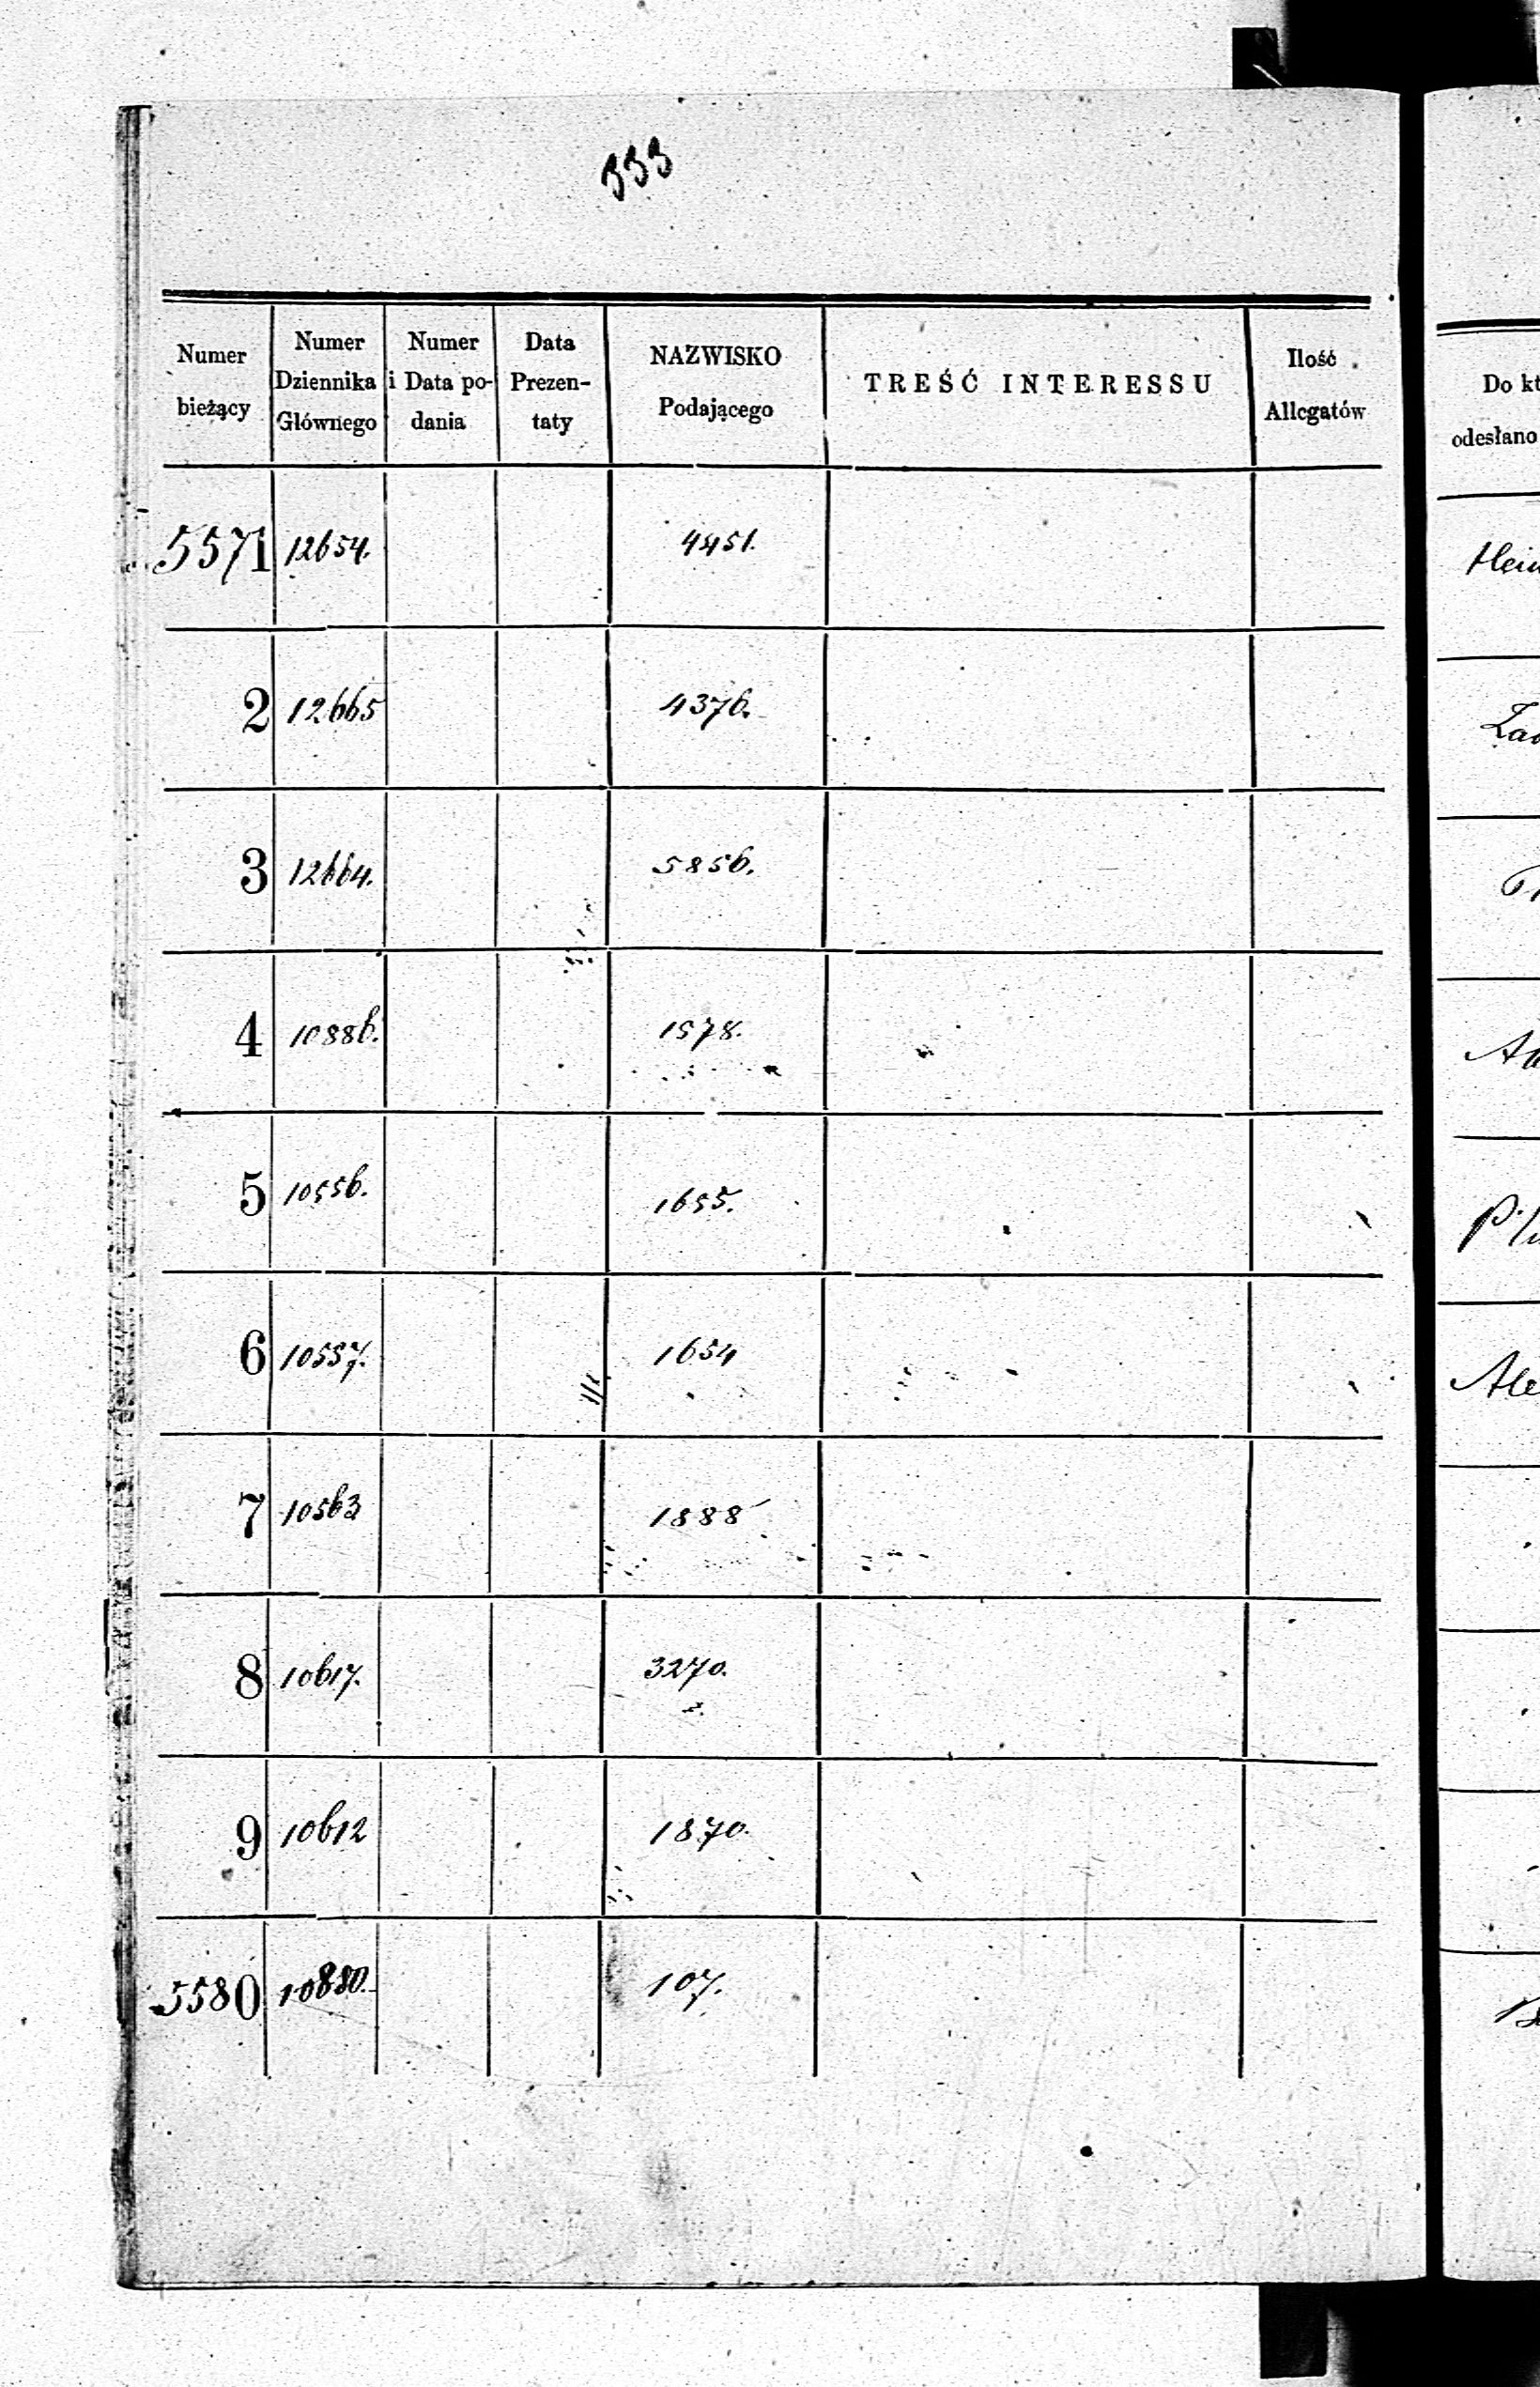 333
Numer bieżący | Numer Dziennika Głównego | Numer i Data po- dania | Data Prezen- taty | NAZWISKO Podającego | TREŚĆ INTERESSU | Ilość Allegatów | Do kt odesłano
5571 | 12654. | 4451.
2 | 12665 | 4376.
3 | 12664. | 5856.
4 | 10886. | 1578.
5 | 10556. | 1655.
6 | 10557. | 1654 | Ale
7 | 10563 | 1888
8 | 10617. | 3270.
9 | 10612 | 1870.
5580 | 10880. | 107.